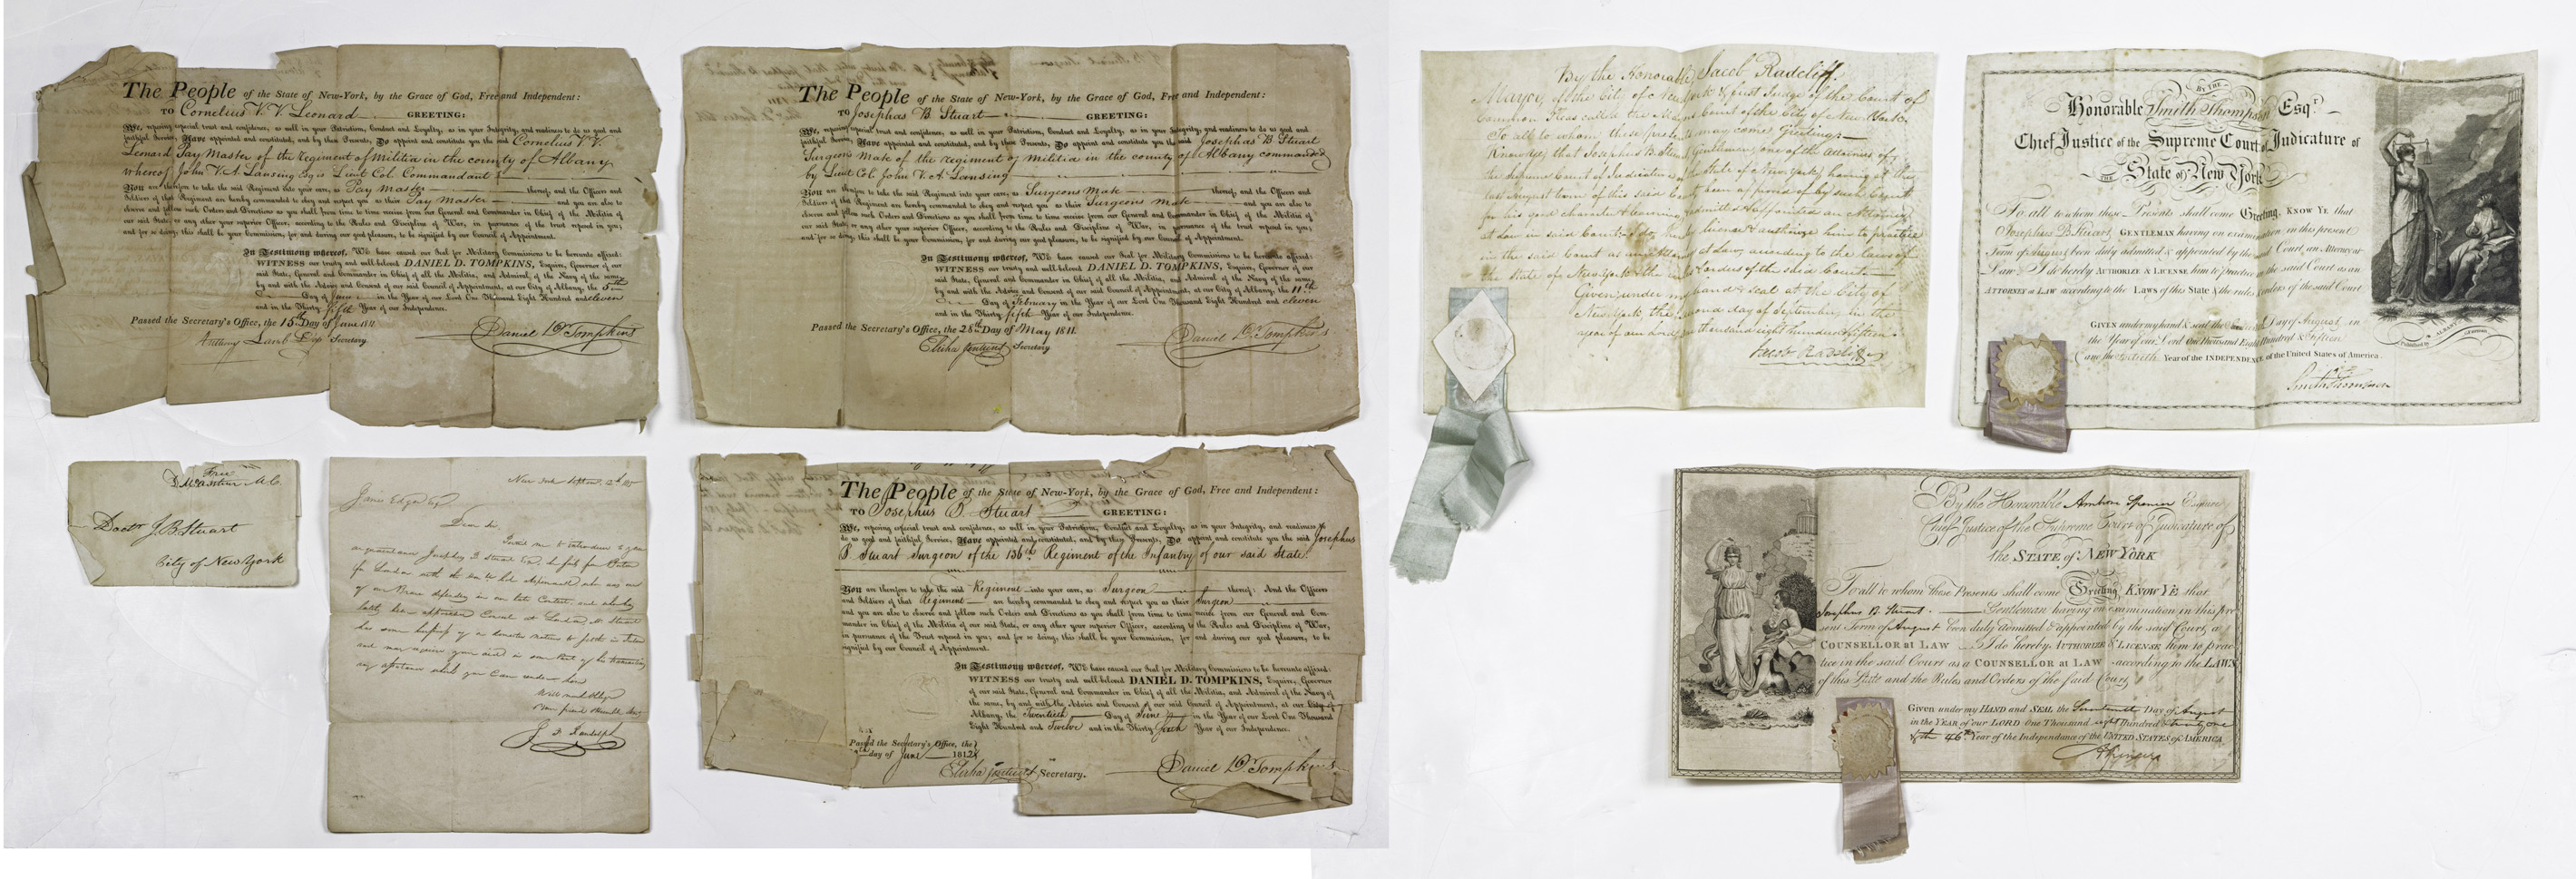 The People of the State of New-York, by the Grace of God, Free and Independent:
TO Cornelius V. V. Leonard GREETING:
We, reposing especial trust and confidence, as well in your Patriotism, Conduct and Loyalty, as in your Integrity, and readiness to do us good and
faithful Service, Have appointed and constituted, and by these Presents, Do appoint and constitute you the said Cornelius V. V.
Leonard Pay Master of the Regiment of Militia in the county of Albany
whereof John V. A. Lansing Esq is Lieut Col. Commandant
You are therefore to take the said Regiment into your care, as Pay Master thereof, and the Officers and
Soldiers of that Regiment are hereby commanded to obey and respect you as their Pay Master and you are also to
observe and follow such Orders and Directions as you shall from time to time receive from our General and Commander in Chief of the Militia of
our said State, or any other your superior Officer, according to the Rules and Discipline of War, in pursuance of the trust reposed in you;
and for so doing, this shall be your Commission, for and during our good pleasure, to be signified by our Council of Appointment.
In Testimony whereof, We have caused our Seal for Military Commissions to be hereunto affixed:
WITNESS our trusty and well-beloved DANIEL D. TOMPKINS, Esquire, Governor of our
said State, General and Commander in Chief of all the Militia, and Admiral of the Navy of the same,
by and with the Advice and Consent of our said Council of Appointment, at our City of Albany, the 5th
Day of June in the Year of our Lord One Thousand Eight Hundred and eleven
and in the Thirty fifth Year of our Independence.
Passed the Secretary's Office, the 15th Day of June 1811
Anthony Lamb Dep Secretary
Daniel D Tompkins
The People of the State of New-York, by the Grace of God, Free and Independent:
TO Josephus B Stuart GREETING:
We, reposing especial trust and confidence, as well in your Patriotism, Conduct and Loyalty, as in your Integrity, and readiness to do us good and
faithful Service, Have appointed and constituted, and by these Presents, Do appoint and constitute you the said Josephus B Stuart
Surgeons Mate of the regiment of Militia in the county of Albany commanded
by Lieut Col. John V. A. Lansing
You are therefore to take the said Regiment into your care, as Surgeons Mate thereof, and the Officers and
Soldiers of that Regiment are hereby commanded to obey and respect you as their Surgeons Mate and you are also to
observe and follow such Orders and Directions as you shall from time to time receive from our General and Commander in Chief of the Militia of
our said State, or any other your superior Officer, according to the Rules and Discipline of War, in pursuance of the trust reposed in you;
and for so doing, this shall be your Commission, for and during our good pleasure, to be signified by our Council of Appointment.
In Testimony whereof, We have caused our Seal for Military Commissions to be hereunto affixed:
WITNESS our trusty and well-beloved DANIEL D. TOMPKINS, Esquire, Governor of our
said State, General and Commander in Chief of all the Militia, and Admiral of the Navy of the same,
by and with the Advice and Consent of our said Council of Appointment, at our City of Albany, the 11th
Day of February in the Year of our Lord One Thousand Eight Hundred and eleven
and in the Thirty fifth Year of our Independence.
Passed the Secretary's Office, the 28th Day of May 1811.
Elisha Jenkins Secretary
Daniel D Tompkins
Free
M.C.
Doctr J. B Stuart
City of New York
New York Septem 12th
James Edgar Esq
Dear Sir,
Permit me to introduce to your
acquaintance Josephus B Stuart Esq
for London with
of our Brave defenders in our late Contest, and who has
lately been appointed Consul at London, Mr Stuart
has some
and may require your aid in some Part of his transactions
any assistance which you Can render him
Will much Oblige
Your friend & humble
J. F. Randolph
The People of the State of New-York, by the Grace of God, Free and Independent:
TO Josephus B. Stuart GREETING:
We, reposing especial trust and confidence, as well in your Patriotism, Conduct and Loyalty, as in your Integrity, and readiness to
do us good and faithful Service, Have appointed and constituted, and by these Presents, Do appoint and constitute you the said Josephus
B. Stuart Surgeon of the 136th Regiment of the Infantry of our said State.
You are therefore to take the said Regiment into your care, as Surgeon thereof: And the Officers
and Soldiers of that Regiment are hereby commanded to obey and respect you as their Surgeon
and you are also to observe and follow such Orders and Directions as you shall from time to time receive from our General and Com-
mander in Chief of the Militia of our said State, or any other your superior Officer, according to the Rules and Discipline of War,
in pursuance of the Trust reposed in you; and for so doing, this shall be your Commission, for and during our good pleasure, to be
signified by our Council of Appointment.
In Testimony whereof, We have caused our Seal for Military Commissions to be hereunto affixed:
WITNESS our trusty and well-beloved DANIEL D. TOMPKINS, Esquire, Governor
of our said State, General and Commander in Chief of all the Militia, and Admiral of the Navy of
the same, by and with the Advice and Consent of our said Council of Appointment, at our City of
Albany, the Twentieth Day of June in the Year of our Lord One Thousand
Eight Hundred and Twelve and in the Thirty Sixth Year of our Independence.
Passed the Secretary's Office, the
day of June 1812
Elisha Jenkins Secretary.
Daniel D Tompkins
By the Honorable Jacob Radcliff.
Mayor of the City of New York & first Judge of the Court of
Common Pleas called the Mayors Court of the City of New York.
To all to whom these presents may come Greeting
Know ye, that Josephus B. Stuart, Gentleman, one of the Attornies of
the supreme Court of Judicature of the State of New York, having at the
last August term of this said Court been approved of by such Court
for his good character & learning, & admitted & appointed an Attorney
at Law in said Court, I do thereby license & authorize him to practice
in the said Court as an Attorney at Law, according to the laws of
the State of New York & the rules & orders of the said Court
Given under my hand & seal at the City of
New York the second day of September in the
year of our Lord one thousand eight hundred & fifteen
Jacob Radcliff
BY THE
Honorable Smith Thompson Esqr
Chief Justice of the Supreme Court of Judicature of
THE State of New York
To all to whom these Presents shall come Greeting, KNOW YE that
Josephus B. Stuart GENTLEMAN having on examination in this present
Term of August been duly admitted & appointed by the said Court, an Attorney at
Law: I do hereby AUTHORIZE & LICENSE him to practice in the said Court as an
ATTORNEY at LAW according to the Laws of this State & the rules & orders of the said Court
GIVEN under my hand & seal the Day of August in
the Year of our Lord One Thousand Eight Hundred & Fifteen
and the Fortieth Year of the INDEPENDENCE of the United States of America.
Smith Thompson
Published by ALBANY
By the Honorable Ambrose Spencer Esquire,
Chief Justice of the Supreme Court of Judicature of
the STATE of NEW YORK
To all to whom these Presents shall come Greeting KNOW YE that
Josephus B. Stuart. Gentleman having on examination in this pre
sent Term of August been duly admitted & appointed by the said Court, a
COUNSELLOR at LAW I do hereby AUTHORIZE & LICENSE him to prac
tice in the said Court as a COUNSELLOR at LAW according to the LAWS
of this State and the Rules and Orders of the said Court.
Given under my HAND and SEAL the Seventeenth Day of August
in the YEAR of our LORD One Thousand eight Hundred & twenty one
& the 46th Year of the Independence of the UNITED STATES of AMERICA.
A Spencer